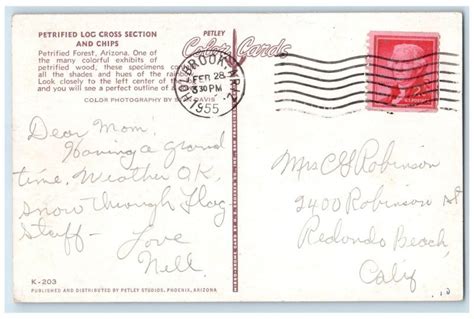 PETRIFIED LOG CROSS SECTION
AND CHIPS
Petrified Forest, Arizona. One of
the many colorful exhibits of
petrified wood, these specimens
all the shades and hues of the
Look closely to the left center of
and you will see a perfect outline of a
COLOR PHOTOGRAPHY BY DAVIS
Dear Mom,
Having a grand
time. Weather OK
snow through Flag-
staff- Love
Nell.
K-203
PUBLISHED AND DISTRIBUTED BY PETLEY STUDIOS, PHOENIX, ARIZONA
PETLEY
Color Cards
HOLBROOK, ARIZ.
FEB 28
530 PM
1955
2¢
Mrs C G Robinson
2400 Robinson St
Redondo Beach,
Calif